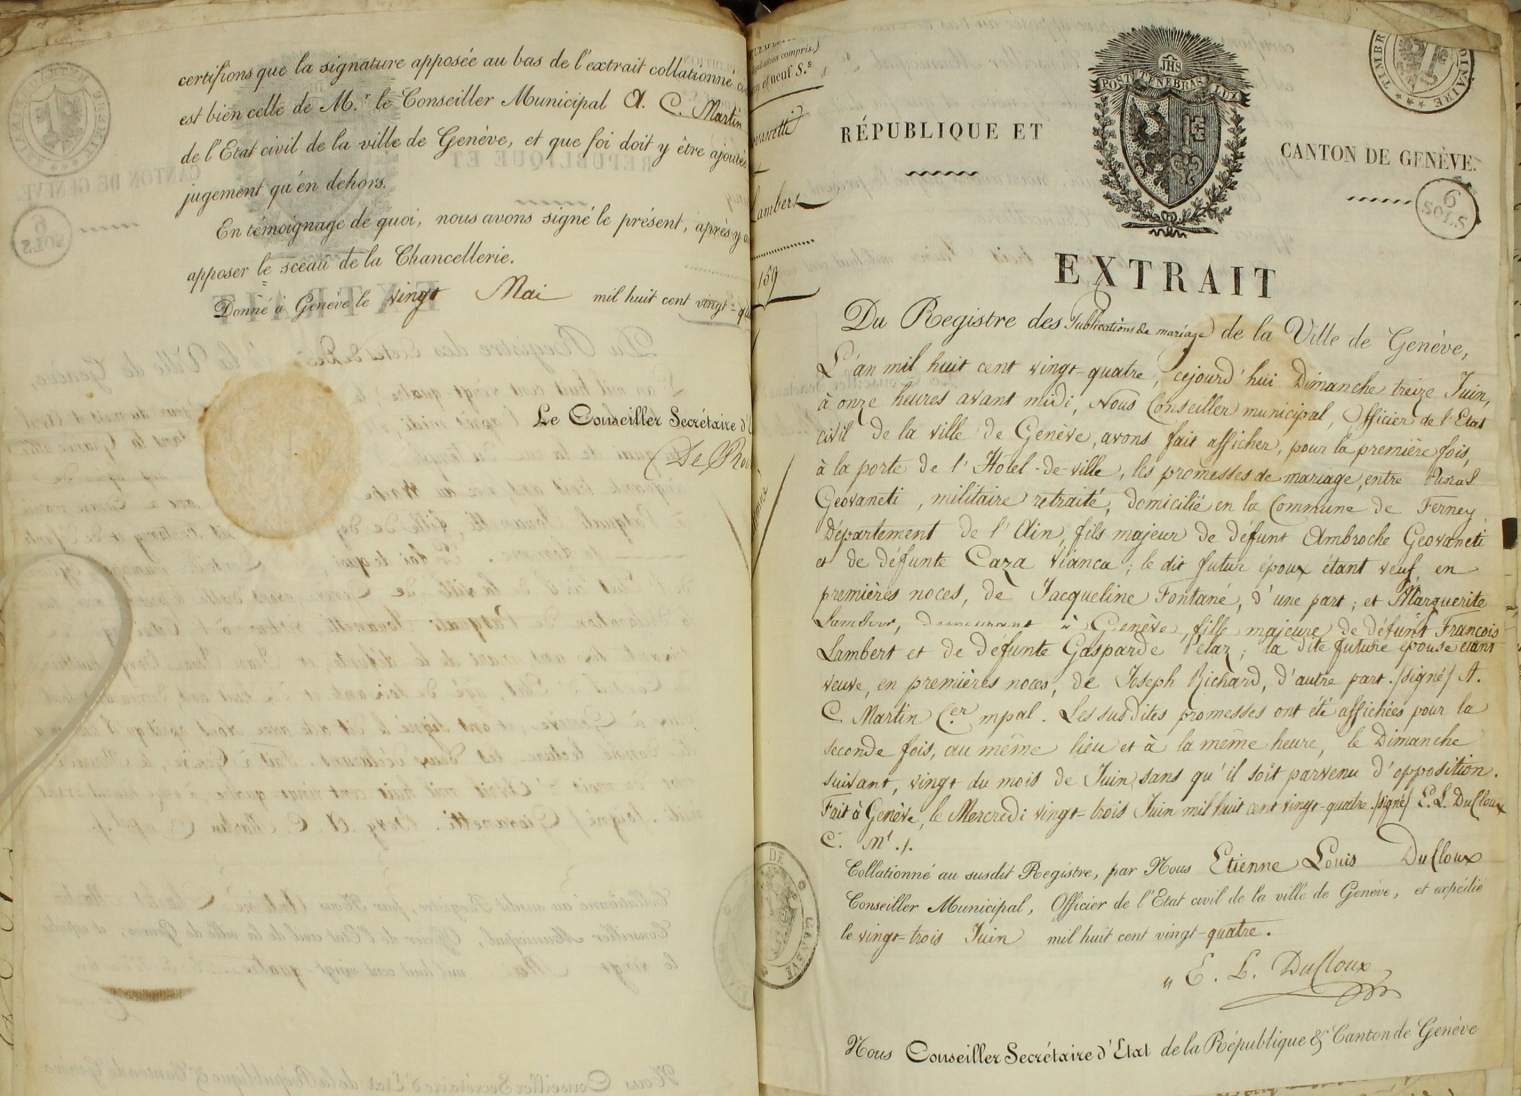 certifions que la signature apposée au bas de l'extrait collationné
est bien celle de M.r le Conseiller Municipal A. C. Martin
de l'Etat civil de la ville de Genève, et que foi doit y être ajoutée
jugement qu'en dehors.
En témoignage de quoi, nous avons signé le présent, après y
apposer le sceau de la Chancellerie.
Donné à Genève le vingt Mai mil huit cent vingt-
Le Conseiller Secrétaire d'
De
compris.)
neuf S.s
Lambert
159
POST TENEBRAS LUX
IHS
RÉPUBLIQUE ET
CANTON DE GENÈVE.
6
SOLS
EXTRAIT
Du Registre des Publications de mariage de la Ville de Genève,
L'an mil huit cent vingt-quatre, cejourd'hui Dimanche treize Juin,
à onze heures avant midi, Nous Conseiller municipal, Officier de l'Etat
civil de la ville de Genève, avons fait afficher, pour la première fois,
à la porte de l'Hotel-de-ville, les promesses de mariage, entre Pascal
Geovaneti, militaire retraité, domicilié en la Commune de Ferney
Département de l'Ain, fils majeur de défunt Ambroche Geovaneti
et de défunte Caza Vianca; le dit futur époux étant veuf, en
premières noces, de Jacqueline Fontané, d'une part; et Marguerite
Lambert, demeurant à Genève, fille majeure de défunt François
Lambert et de défunte Gasparde Petaz; la dite future épouse étant
veuve, en premières noces, de Joseph Richard, d'autre part. /signé/ A.
C. Martin C.er mpal. Les susdites promesses ont été affichées pour la
seconde fois, au même lieu et à la même heure, le Dimanche
suivant, vingt du mois de Juin, sans qu'il soit parvenu d'opposition.
Fait à Genève, le Mercredi vingt-trois Juin mil huit cent vingt-quatre. /signé/ E. L. DuCloux
C. M.l /.
Collationné au susdit Registre, par Nous Etienne Louis DuCloux
Conseiller Municipal, Officier de l'Etat civil de la ville de Genève, et expédié
le vingt-trois Juin mil huit cent vingt-quatre.
" E. L. DuCloux
DE GENÈVE
Nous Conseiller Secrétaire d'Etat de la République & Canton de Genève